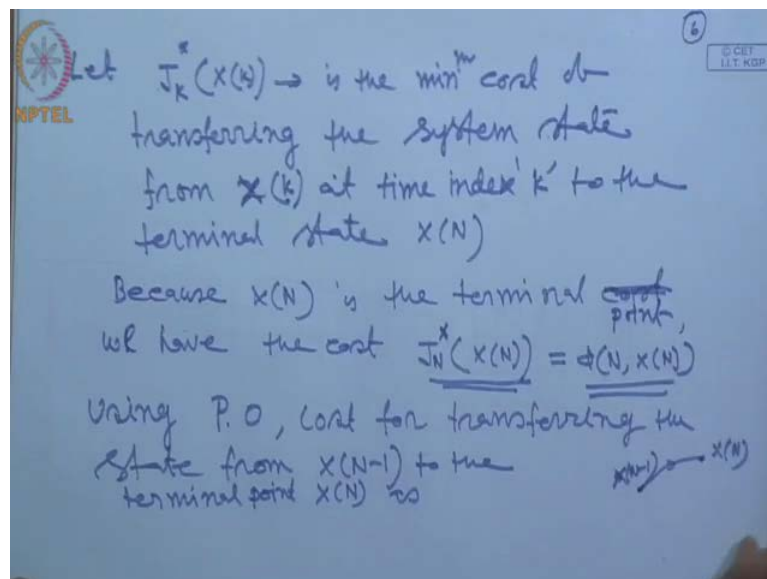 6
© CET
I.I.T. KGP
NPTEL
Let J*_K(X(k)) → is the min^m cost of
transferring the system state
from X(k) at time index 'k' to the
terminal state X(N)
Because X(N) is the terminal
point,
we have the cost J*_N(X(N)) = φ(N, X(N))
Using P.O, cost for transferring the
state from X(N-1) to the
terminal point X(N) is
X(N-1) X(N)